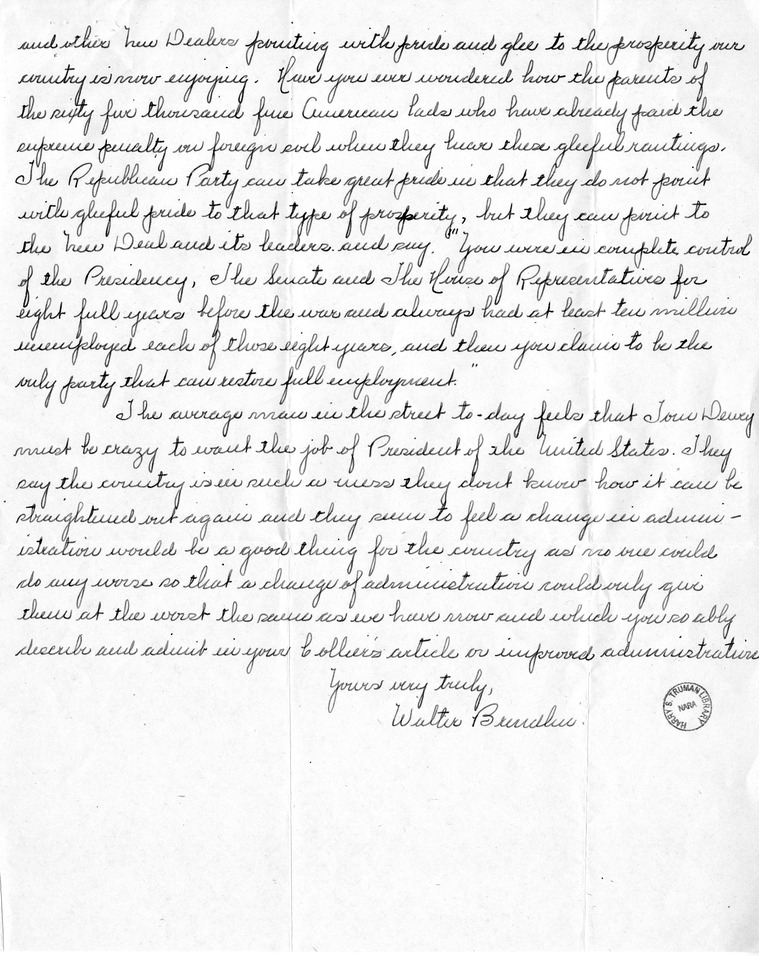 and other New Dealers pointing with pride and glee to the prosperity our
country is now enjoying. Have you ever wondered how the parents of
the sixty five thousand fine American lads who have already paid the
supreme penalty on foreign soil when they hear these gleeful rantings.
The Republican Party can take great pride in that they do not point
with gleeful pride to that type of prosperity, but they can point to
the New Deal and its leaders and say. "You were in complete control
of the Presidency, The Senate and The House of Representatives for
eight full years before the war and always had at least ten million
unemployed each of those eight years, and then you claim to be the
only party that can restore full employment."
The average man in the street to-day feels that Tom Dewey
must be crazy to want the job of President of the United States. They
say the country is in such a mess they dont know how it can be
straightened out again and they seem to feel a change in admin-
istration would be a good thing for the country as no one could
do any worse so that a change of administration could only give
them at the worst the same as we have now and which you so ably
describe and admit in your Collier's article or improved administration
Yours very truly,
Walter
HARRY S. TRUMAN LIBRARY
NARA